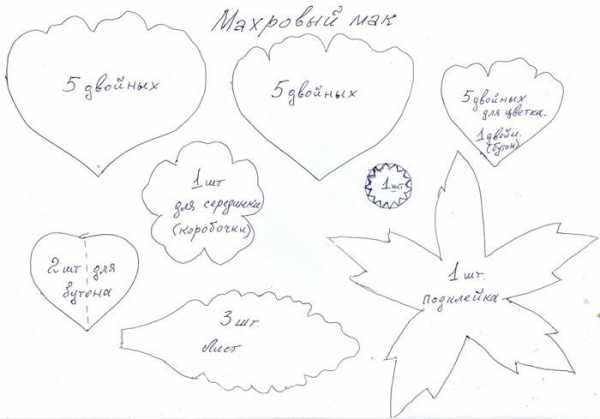 Махровый мак
5 двойных
5 двойных
5 двойных
для цветка.
1 двойн.
(бутон)
1 шт
для серединки
(коробочки)
1 шт.
2 шт для
бутона
1 шт.
подклейка
3 шт.
Лист